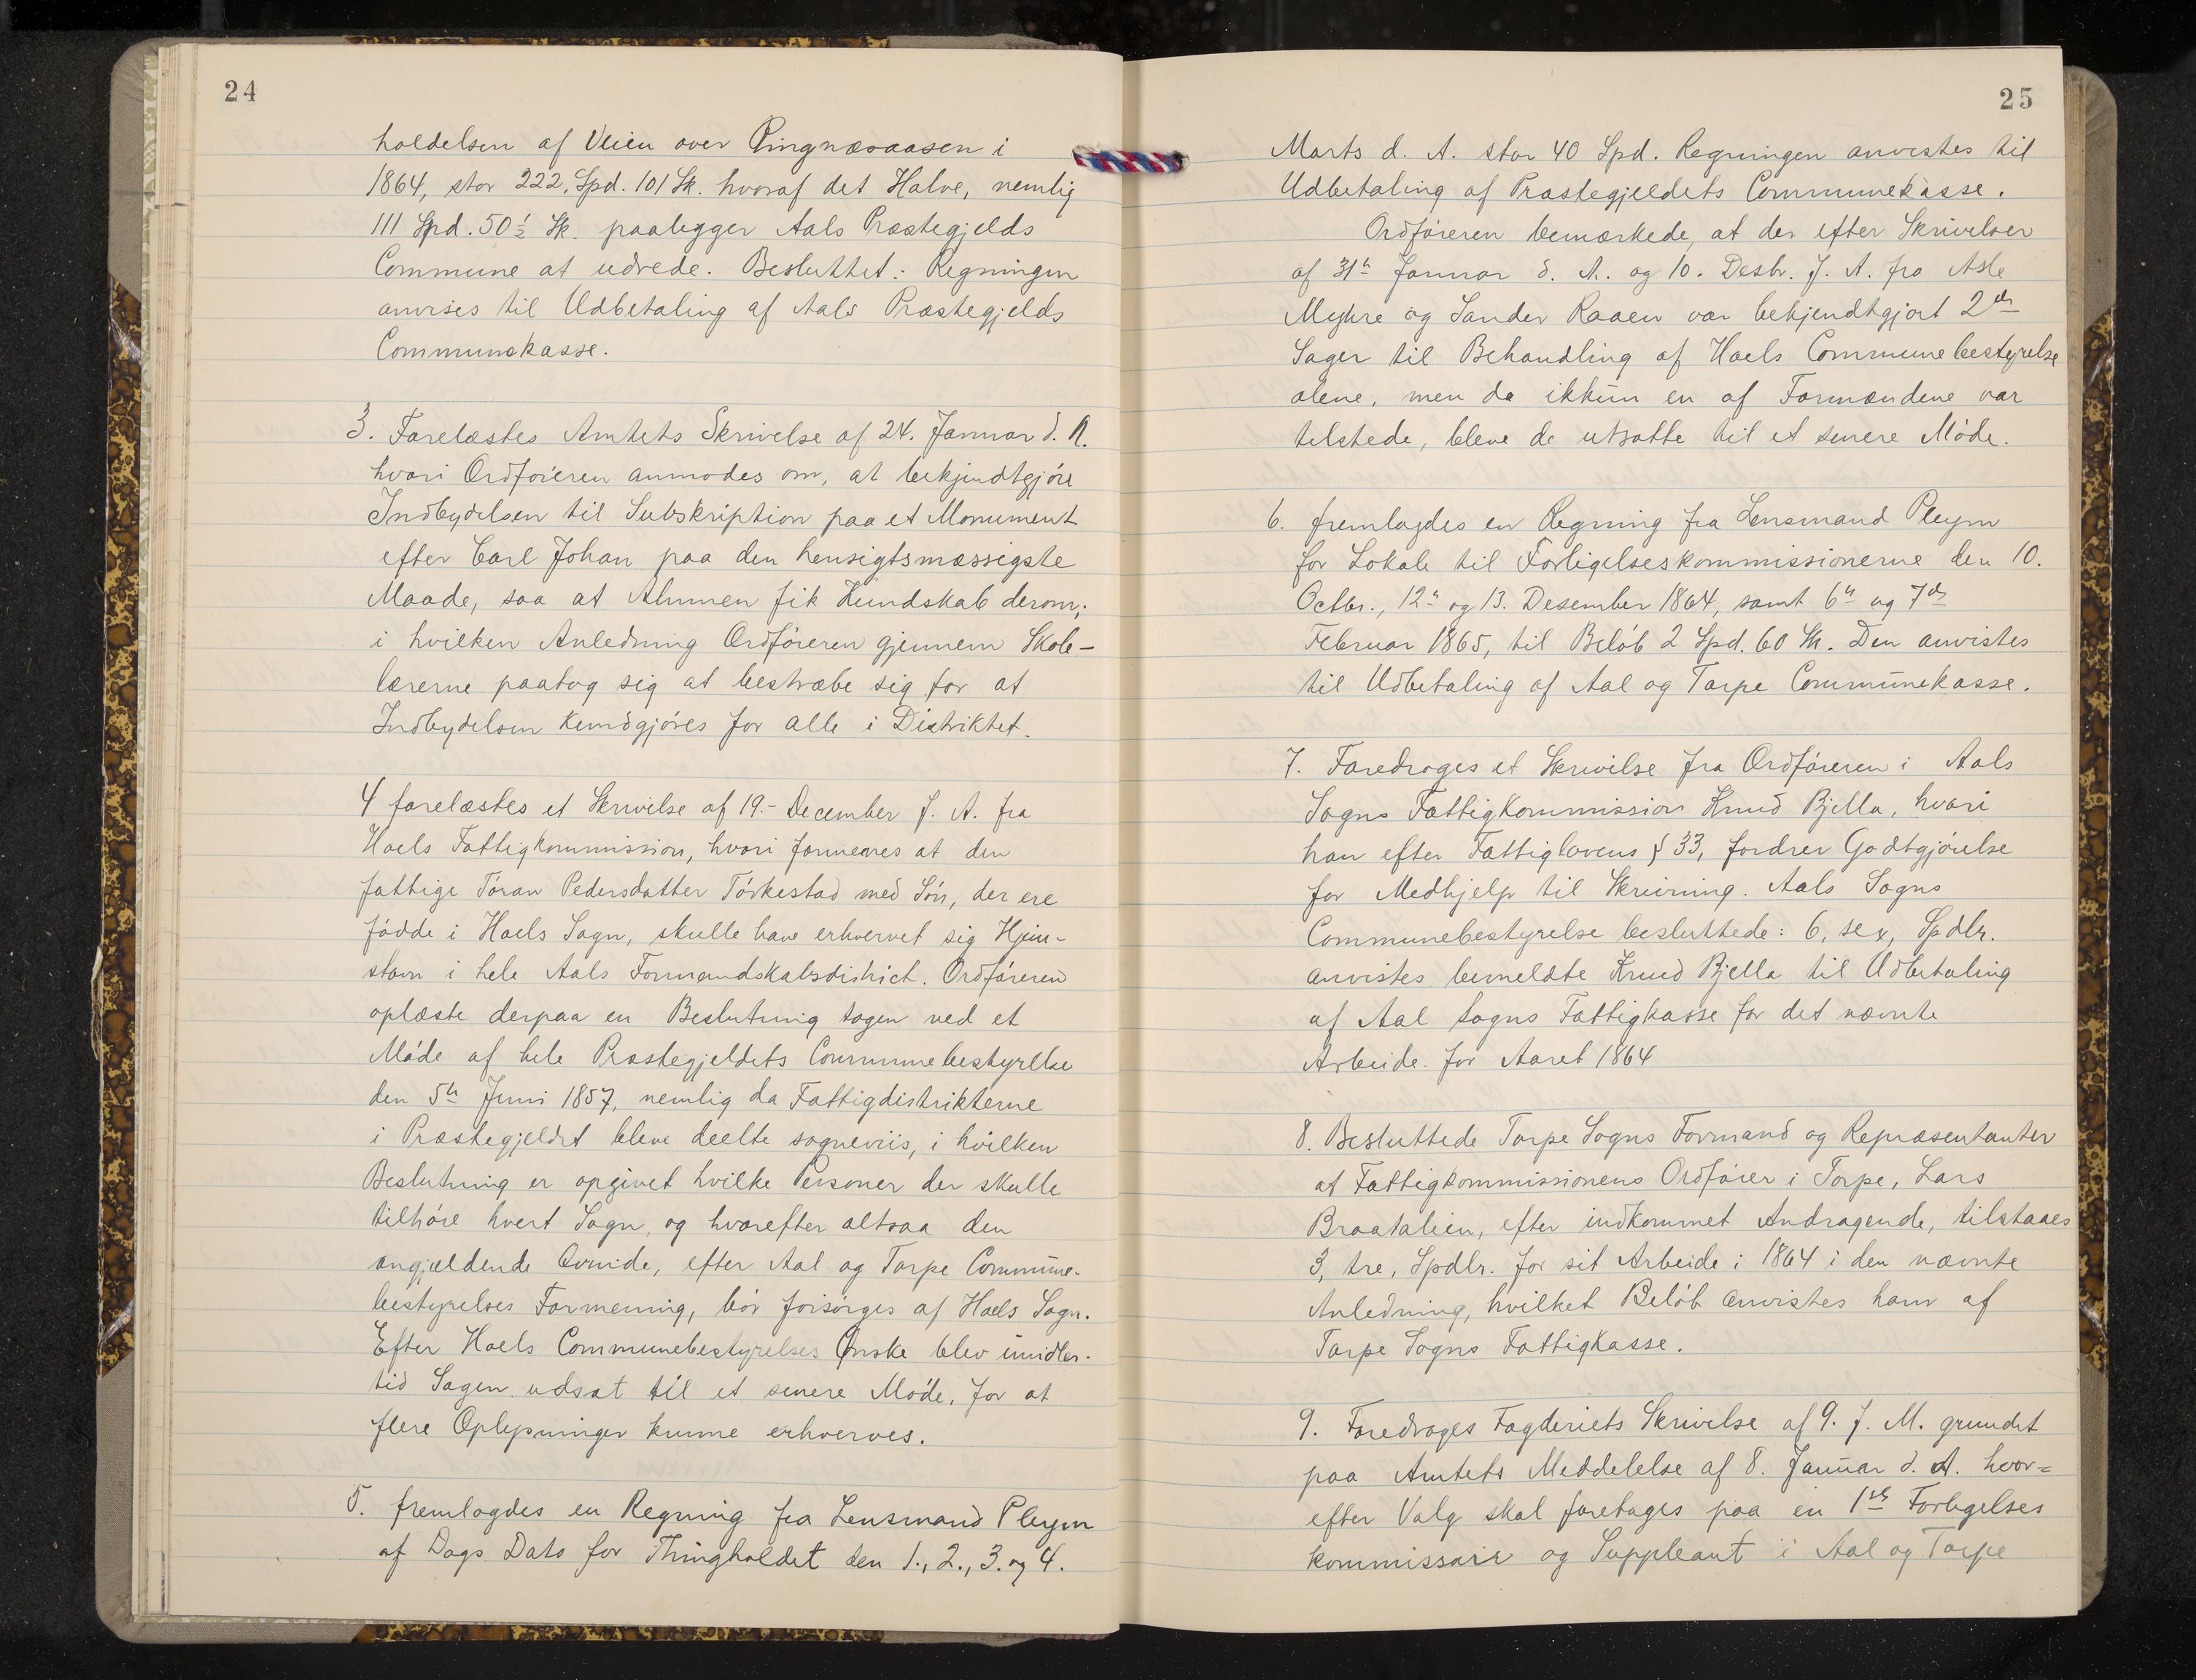 24
holdelsen af Veien over Ringnæsaasen i
1864, stor 222, Spd. 101 Sk. hvoraf det Halve, nemlig
111 Spd. 50½ Sk. paalegger Aals Præstegjelds
Commune at udrede. Besluttet: Regningen
anvises til Udbetaling af Aals Præstegjelds
Communekasse.
3. Forelæstes Amtets Skrivelse af 24. Januar d. A.
hvori Ordføreren anmodes om, at bekjendtgjøre
Indbydelsen til Subskription paa et Monument
efter Carl Johan paa den hensigtsmæssigste
Maade, saa at Almuen fik Kundskab derom;
i hvilken Anledning Ordføreren gjennem Skole-
lærerne paatog sig at bestræbe sig for at
Indbydelsen kundgjøres for alle i Distriktet.
4 forelæstes et Skrivelse af 19.- December f. A. fra
Hoels Fattigkommission, hvori formenes at den
fattige Tóran Pedersdatter Tórkestad med Són, der ere
fódde i Hoels Sogn, skulle have erhvervet sig Hjem-
stavn i hele Aals Formandskabsdistrict. Ordføreren
oplæste derpaa en Beslutning tagen ved et
Móde af hele Præstegjeldets Communebestyrelse
den 5te Juni 1857, nemlig da Fattigdistrikterne
i Præstegjeldet bleve deelte sogneviis, i hvilken
Beslutning er opgivet hvilke Personer der skulle
tilhóre hvert Sogn, og hvorefter altsaa den
angjældende Qvinde, efter Aal og Torpe Commune-
bestyrelses Formening, bór forsórges af Hoels Sogn.
Efter Hoels Communebestyrelses Ønske blev imidler-
tid Sagen udsat til et senere Móde, for at
flere Oplysninger kunne erhverves.
5. fremlagdes en Regning fra Lensmand Pleym
af Dags Dato for Thingholdet den 1., 2., 3. og 4.
25
Marts d. A. stor 40 Spd. Regningen anvistes til
Udbetaling af Præstegjeldets Communekasse.
Ordfóreren bemærkede, at der efter Skrivelser
af 31te Januar d. A. og 10. Desbr. f. A. fra Asle
Myhre og Sander Raaen var bekjendtgjort 2de
Sager til Behandling af Hoels Communebestyrelse
alene, men da ikkun en af Formændene var
tilstede, bleve de utsatte til et senere Móde.
6. fremlagdes en Regning fra Lensmand Pleym
for Lokale til Forligelseskommissionerne den 10.
Octbr., 12te og 13. Desember 1864, samt 6te og 7de
Februar 1865, til Belób 2 Spd. 60 Sk. Den anvistes
til Udbetaling af Aal og Torpe Communekasse.
7. Foredroges et Skrivelse fra Ordfóreren i Aals
Sogns Fattigkommission Knud Bjella, hvori
han efter Fattiglovens § 33, fordrer Godtgjórelse
for Medhjelp til Skrivning. Aals Sogns
Communebestyrelse besluttede: 6, sex, Spdlr.
anvistes bemeldte Knud Bjella til Udbetaling
af Aal Sogns Fattigkasse for det nævnte
Arbeide for Aaret 1864
8. Besluttede Torpe Sogns Formand og Repræsentanter
at Fattigkommissionens Ordfórer i Torpe, Lars
Braatalien, efter indkommet Andragende, tilstaaes
3, tre, Spdlr. for sit Arbeide i 1864 i den nævnte
Anledning, hvilket Belób anvistes ham af
Torpe Sogns Fattigkasse.
9. Foredroges Fogderiets Skrivelse af 9. f. M. grundet
paa Amtets Meddelelse af 8. Januar d. A. hvor=
efter Valg skal foretages paa en 1ste Forligelses
kommissair og Suppleant i Aal og Torpe